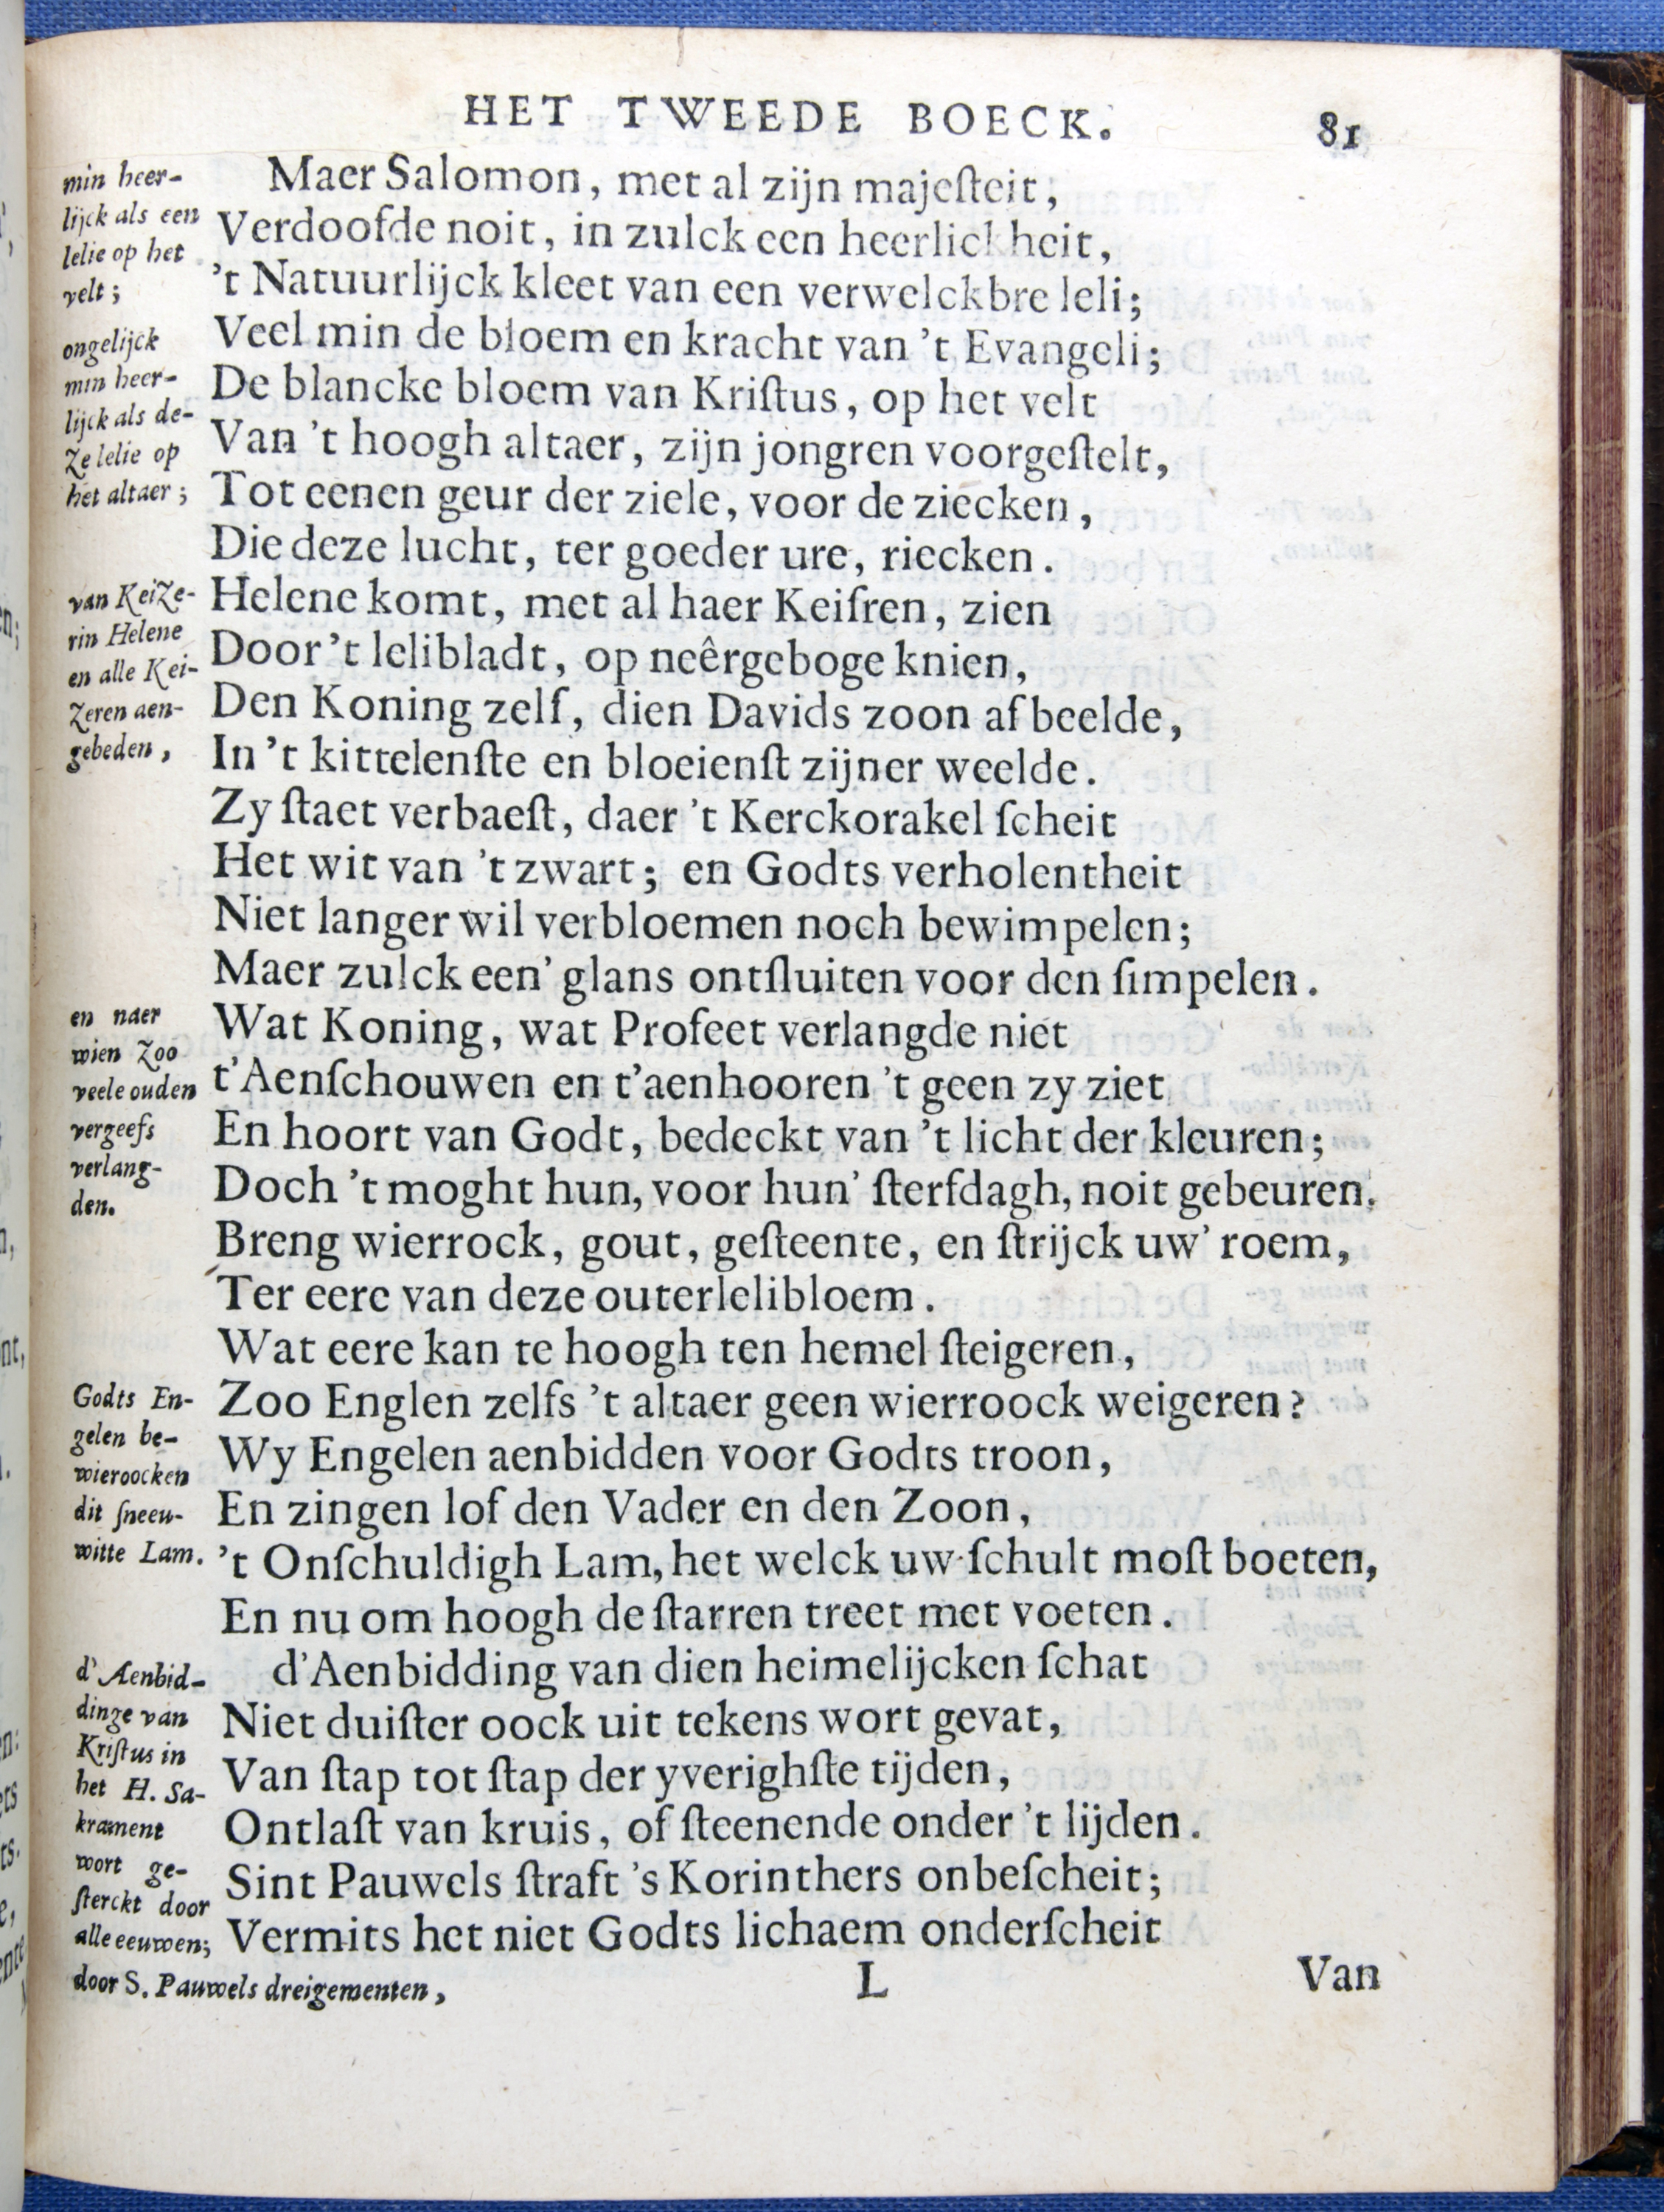 HET TWEEDE BOECK. 81
min heer-
lijck als een
lelie op het
velt;
ongelijck
min heer-
lijck als de-
ze lelie op
het altaer;
van Keize-
rin Helene
en alle Kei-
zeren aen-
gebeden,
en naer
wien zoo
veele ouden
vergeefs
verlang-
den.
Godts En-
gelen be-
wieroocken
dit ſneeu-
witte Lam.
d'Aenbid-
dinge van
Kriſtus in
het H. Sa-
krament
wort ge-
ſterckt door
alle eeuwen;
door S. Pauwels dreigementen,
Maer Salomon, met al zijn majeſteit,
Verdoofde noit, in zulck een heerlickheit,
't Natuurlijck kleet van een verwelckbre leli;
Veel min de bloem en kracht van 't Evangeli;
De blancke bloem van Kriſtus, op het velt
Van 't hoogh altaer, zijn jongren voorgeſtelt,
Tot eenen geur der ziele, voor de ziecken,
Die deze lucht, ter goeder ure, riecken.
Helene komt, met al haer Keiſren, zien
Door 't lelibladt, op neêrgeboge knien,
Den Koning zelf, dien Davids zoon afbeelde,
In 't kittelenſte en bloeienſt zijner weelde.
Zy ſtaet verbaeſt, daer 't Kerckorakel ſcheit
Het wit van 't zwart; en Godts verholentheit
Niet langer wil verbloemen noch bewimpelen;
Maer zulck een' glans ontſluiten voor den ſimpelen.
Wat Koning, wat Profeet verlangde niet
t'Aenſchouwen en t'aenhooren 't geen zy ziet
En hoort van Godt, bedeckt van 't licht der kleuren;
Doch 't moght hun, voor hun' ſterfdagh, noit gebeuren.
Breng wierrock, gout, geſteente, en ſtrijck uw' roem,
Ter eere van deze outerlelibloem.
Wat eere kan te hoogh ten hemel ſteigeren,
Zoo Englen zelfs 't altaer geen wierroock weigeren?
Wy Engelen aenbidden voor Godts troon,
En zingen lof den Vader en den Zoon,
't Onſchuldigh Lam, het welck uw ſchult moſt boeten,
En nu om hoogh de ſtarren treet met voeten.
d'Aenbidding van dien heimelijcken ſchat
Niet duiſter oock uit tekens wort gevat,
Van ſtap tot ſtap der yverighſte tijden,
Ontlaſt van kruis, of ſteenende onder 't lijden.
Sint Pauwels ſtraft 's Korinthers onbeſcheit;
Vermits het niet Godts lichaem onderſcheit
L Van